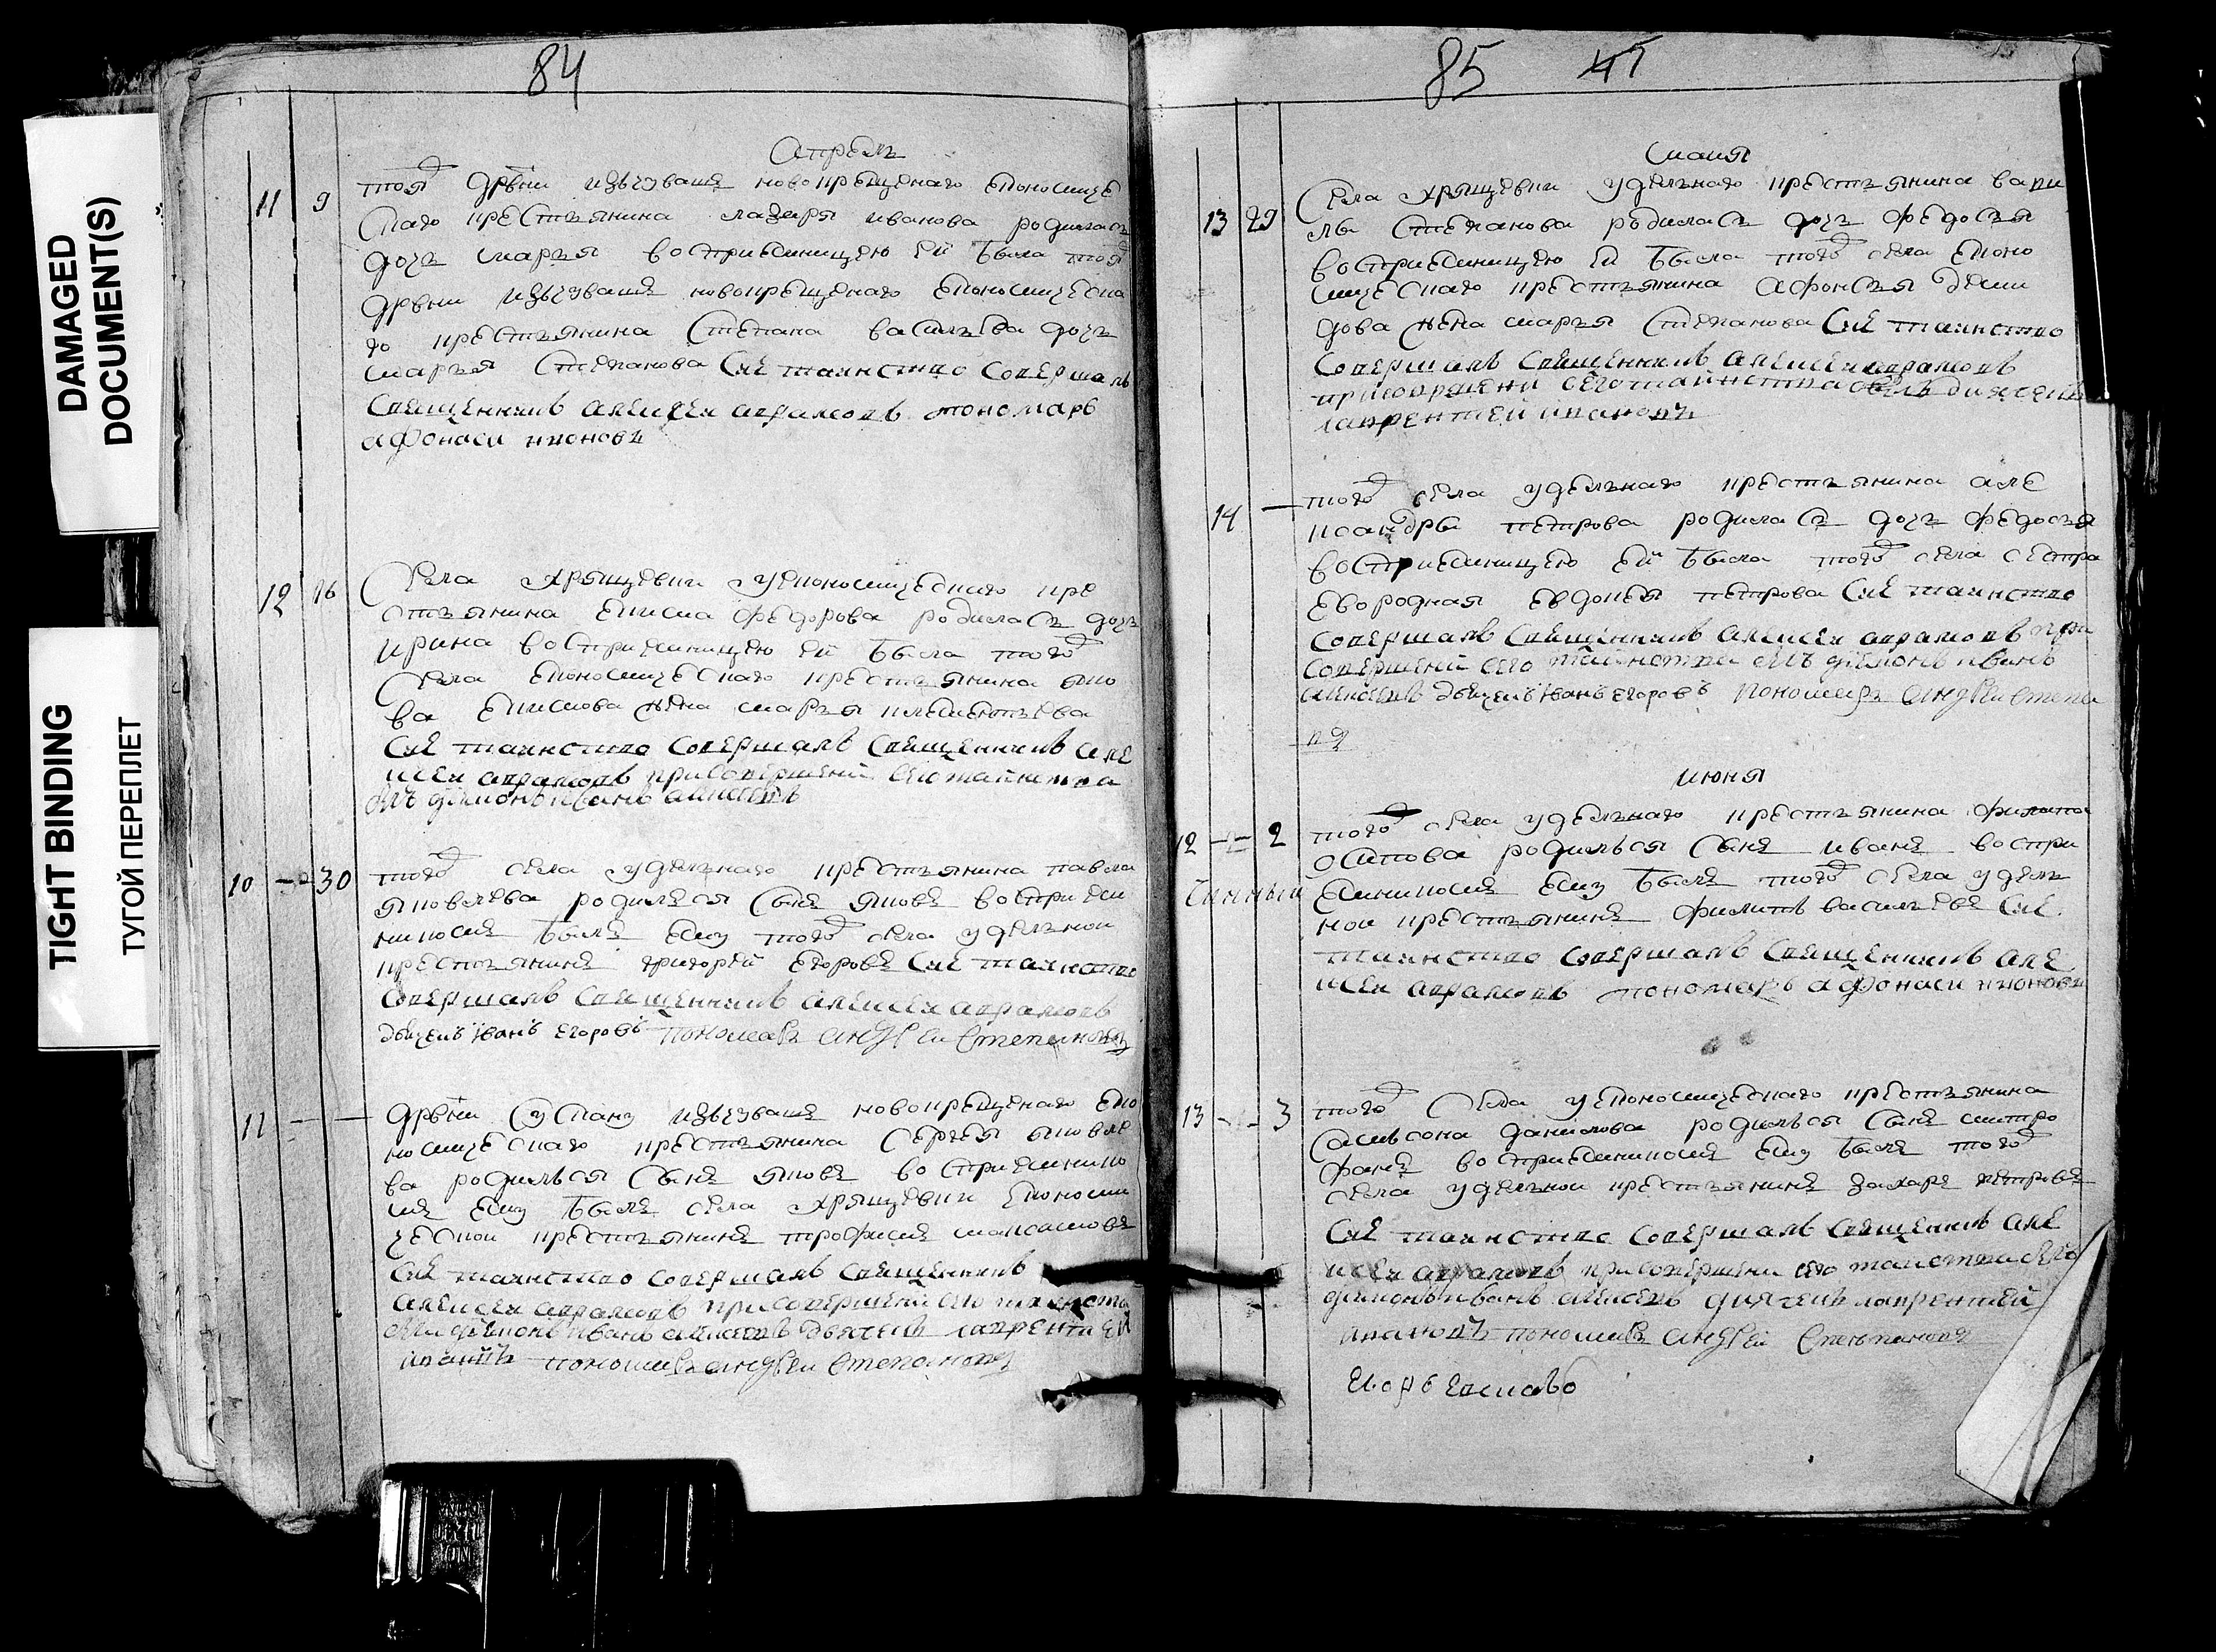 DAMAGED
DOCUMENT(S)
TIGHT BINDING
ТУГОЙ ПЕРЕПЛЕТ
84
Апрель
11 9 тоя дрвни новокрещенаго економиче
скаго крестьянина лазаря иванова родилась
дочь марья восприемницею ей была тоя
дрвни новокрещенаго економическа
го крестьянина степана василева дочь
марья степанова сие таинство совершалъ
священникъ алексеи аврамовъ пономарь
афонаси
12 16 Села хрящевки економическаго кре
стьянина федорова родилась дочь
ирина восприемницею ей была того
села економическаго крестьянина яко
ва жена марья
сие таинство совершалъ священникъ але
ксеи аврамовъ при совершени сего таинства
былъ дияконъ иванъ алексеевъ
10 -- 30 того села удельнаго крестьянина павла
яковлева родился сынъ яковъ восприем
никомъ былъ ему того села удельнои
крестьянинъ григорей егоровъ сие таинство
совершалъ священникъ алексеи аврамовъ
дьячекъ иванъ егоровъ пономарь андреи степановъ
11 — — дрвни новокрещенаго еко
номическаго крестьянина сергея яковле
ва родился сынъ яковъ восприемнико
мъ ему былъ села хрящевки економи
ческои крестьянинъ трофимъ
сие таинство совершалъ священникъ
алексеи аврамовъ при совершени сего таинства
былъ дияконъ иванъ алексеевъ дьячекъ лаврентей
ивановъ пономарь андреи степановъ
85 45
маия
13 29 Села хрящевки удельнаго крестьянина кари
лы степанова родилась дочь федосья
восприемницею ей была того села еконо
мическаго крестьянина афонасья деми
дова жена марья степанова сие таинство
совершалъ священникъ алексеи аврамовъ
при совршени сего таинства былъ диячекъ
лаврентей ивановъ
14 — того села удельнаго крестьянина але
ксандры петрова родилась дочь федосья
восприемницею ей была того села сестра
ево родная евдокея петрова сие таинство
совершалъ священникъ алексеи аврамовъ при
совершени сего таинства былъ дияконъ иванъ
алексеевъ дьячекъ иванъ егоровъ пономарь андреи степа
новъ
июня
12 -- 2 того села удельнаго крестьянина филипа
осипова родилься сынъ иванъ воспри
емникомъ ему былъ того села удель
нои крестьянинъ филипъ василевъ сие
таинство совершалъ священникъ але
ксеи аврамовъ пономарь афонаси
13 -- 3 того села економическаго крестьянина
самсона данилова родилься сынъ митро
фанъ восприемникомъ ему былъ того
села удельнои крестьянинъ захаръ петровъ
сие таинство совершалъ священникъ але
ксеи аврамовъ при совершени сего таинства былъ
дияконъ иванъ алексеевъ диячекъ лаврентей
ивановъ пономарь андреи степановъ